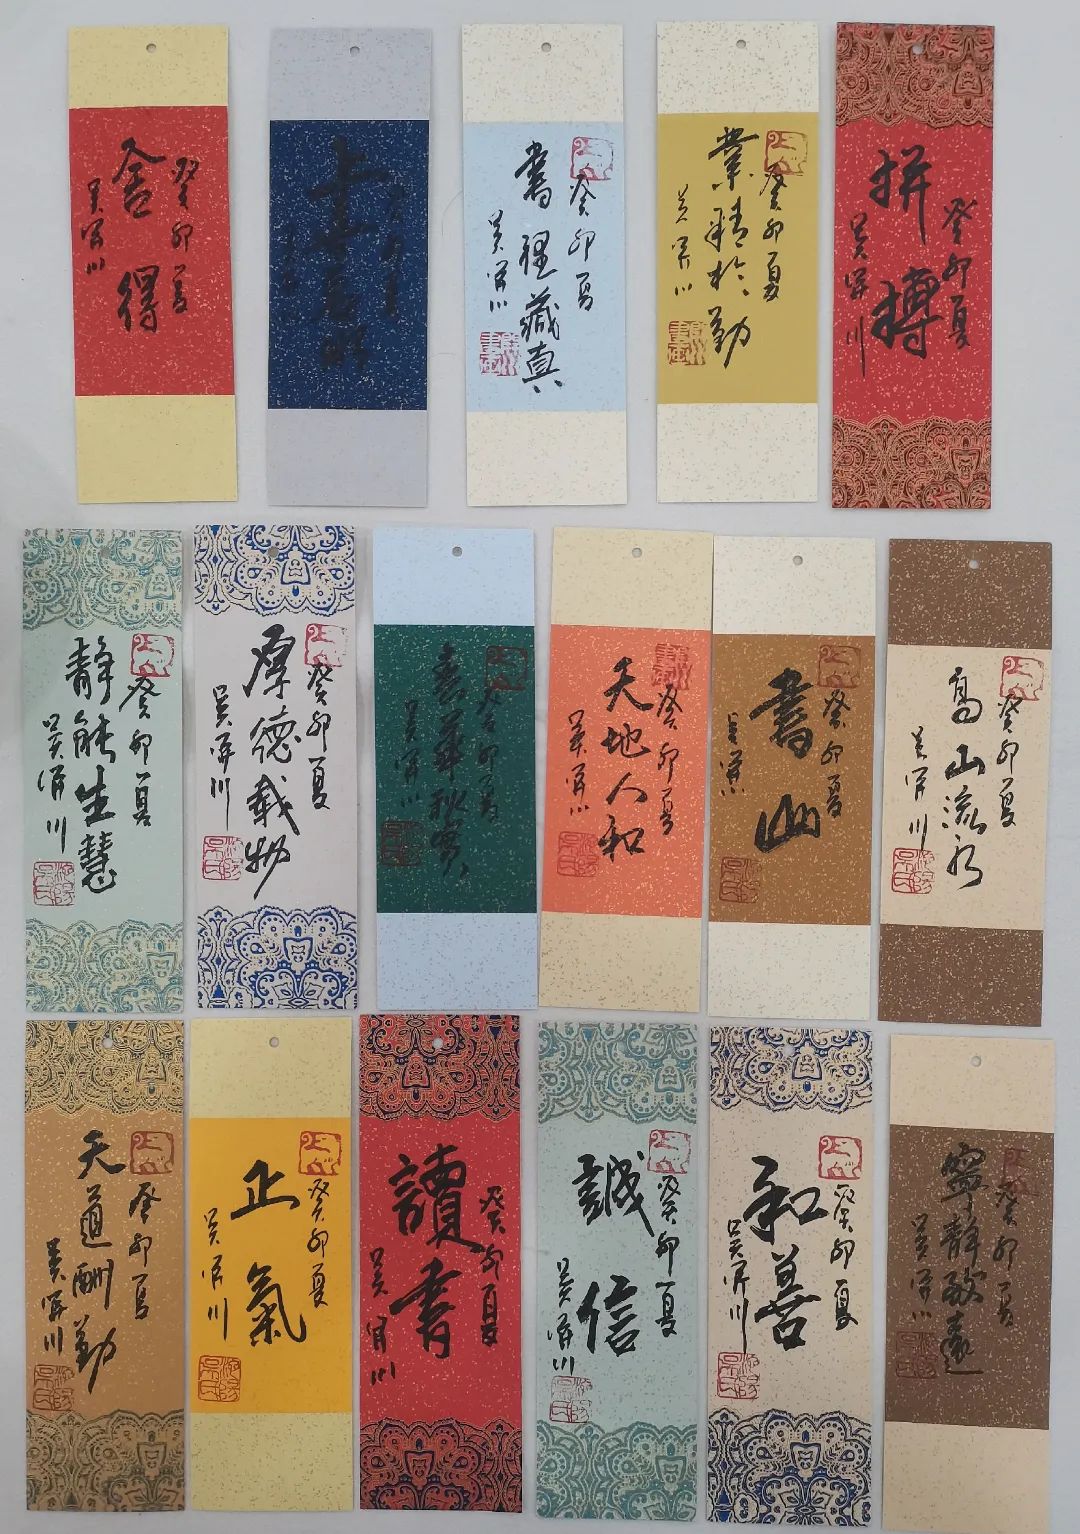 癸卯夏
舍得
吴屏川
癸卯夏
書裡藏真
吴屏川
癸卯夏
業精於勤
吴屏川
癸卯夏
拼搏
吴屏川
癸卯夏
静能生慧
吴屏川
癸卯夏
厚德载物
吴屏川
癸卯夏
春華秋實
吴屏川
癸卯夏
天地人和
吴屏川
癸卯夏
書山
吴屏川
癸卯夏
高山流水
吴屏川
癸卯夏
天道酬勤
吴屏川
癸卯夏
正氣
吴屏川
癸卯夏
讀書
吴屏川
癸卯夏
誠信
吴屏川
癸卯夏
和善
吴屏川
癸卯夏
寧静致遠
吴屏川